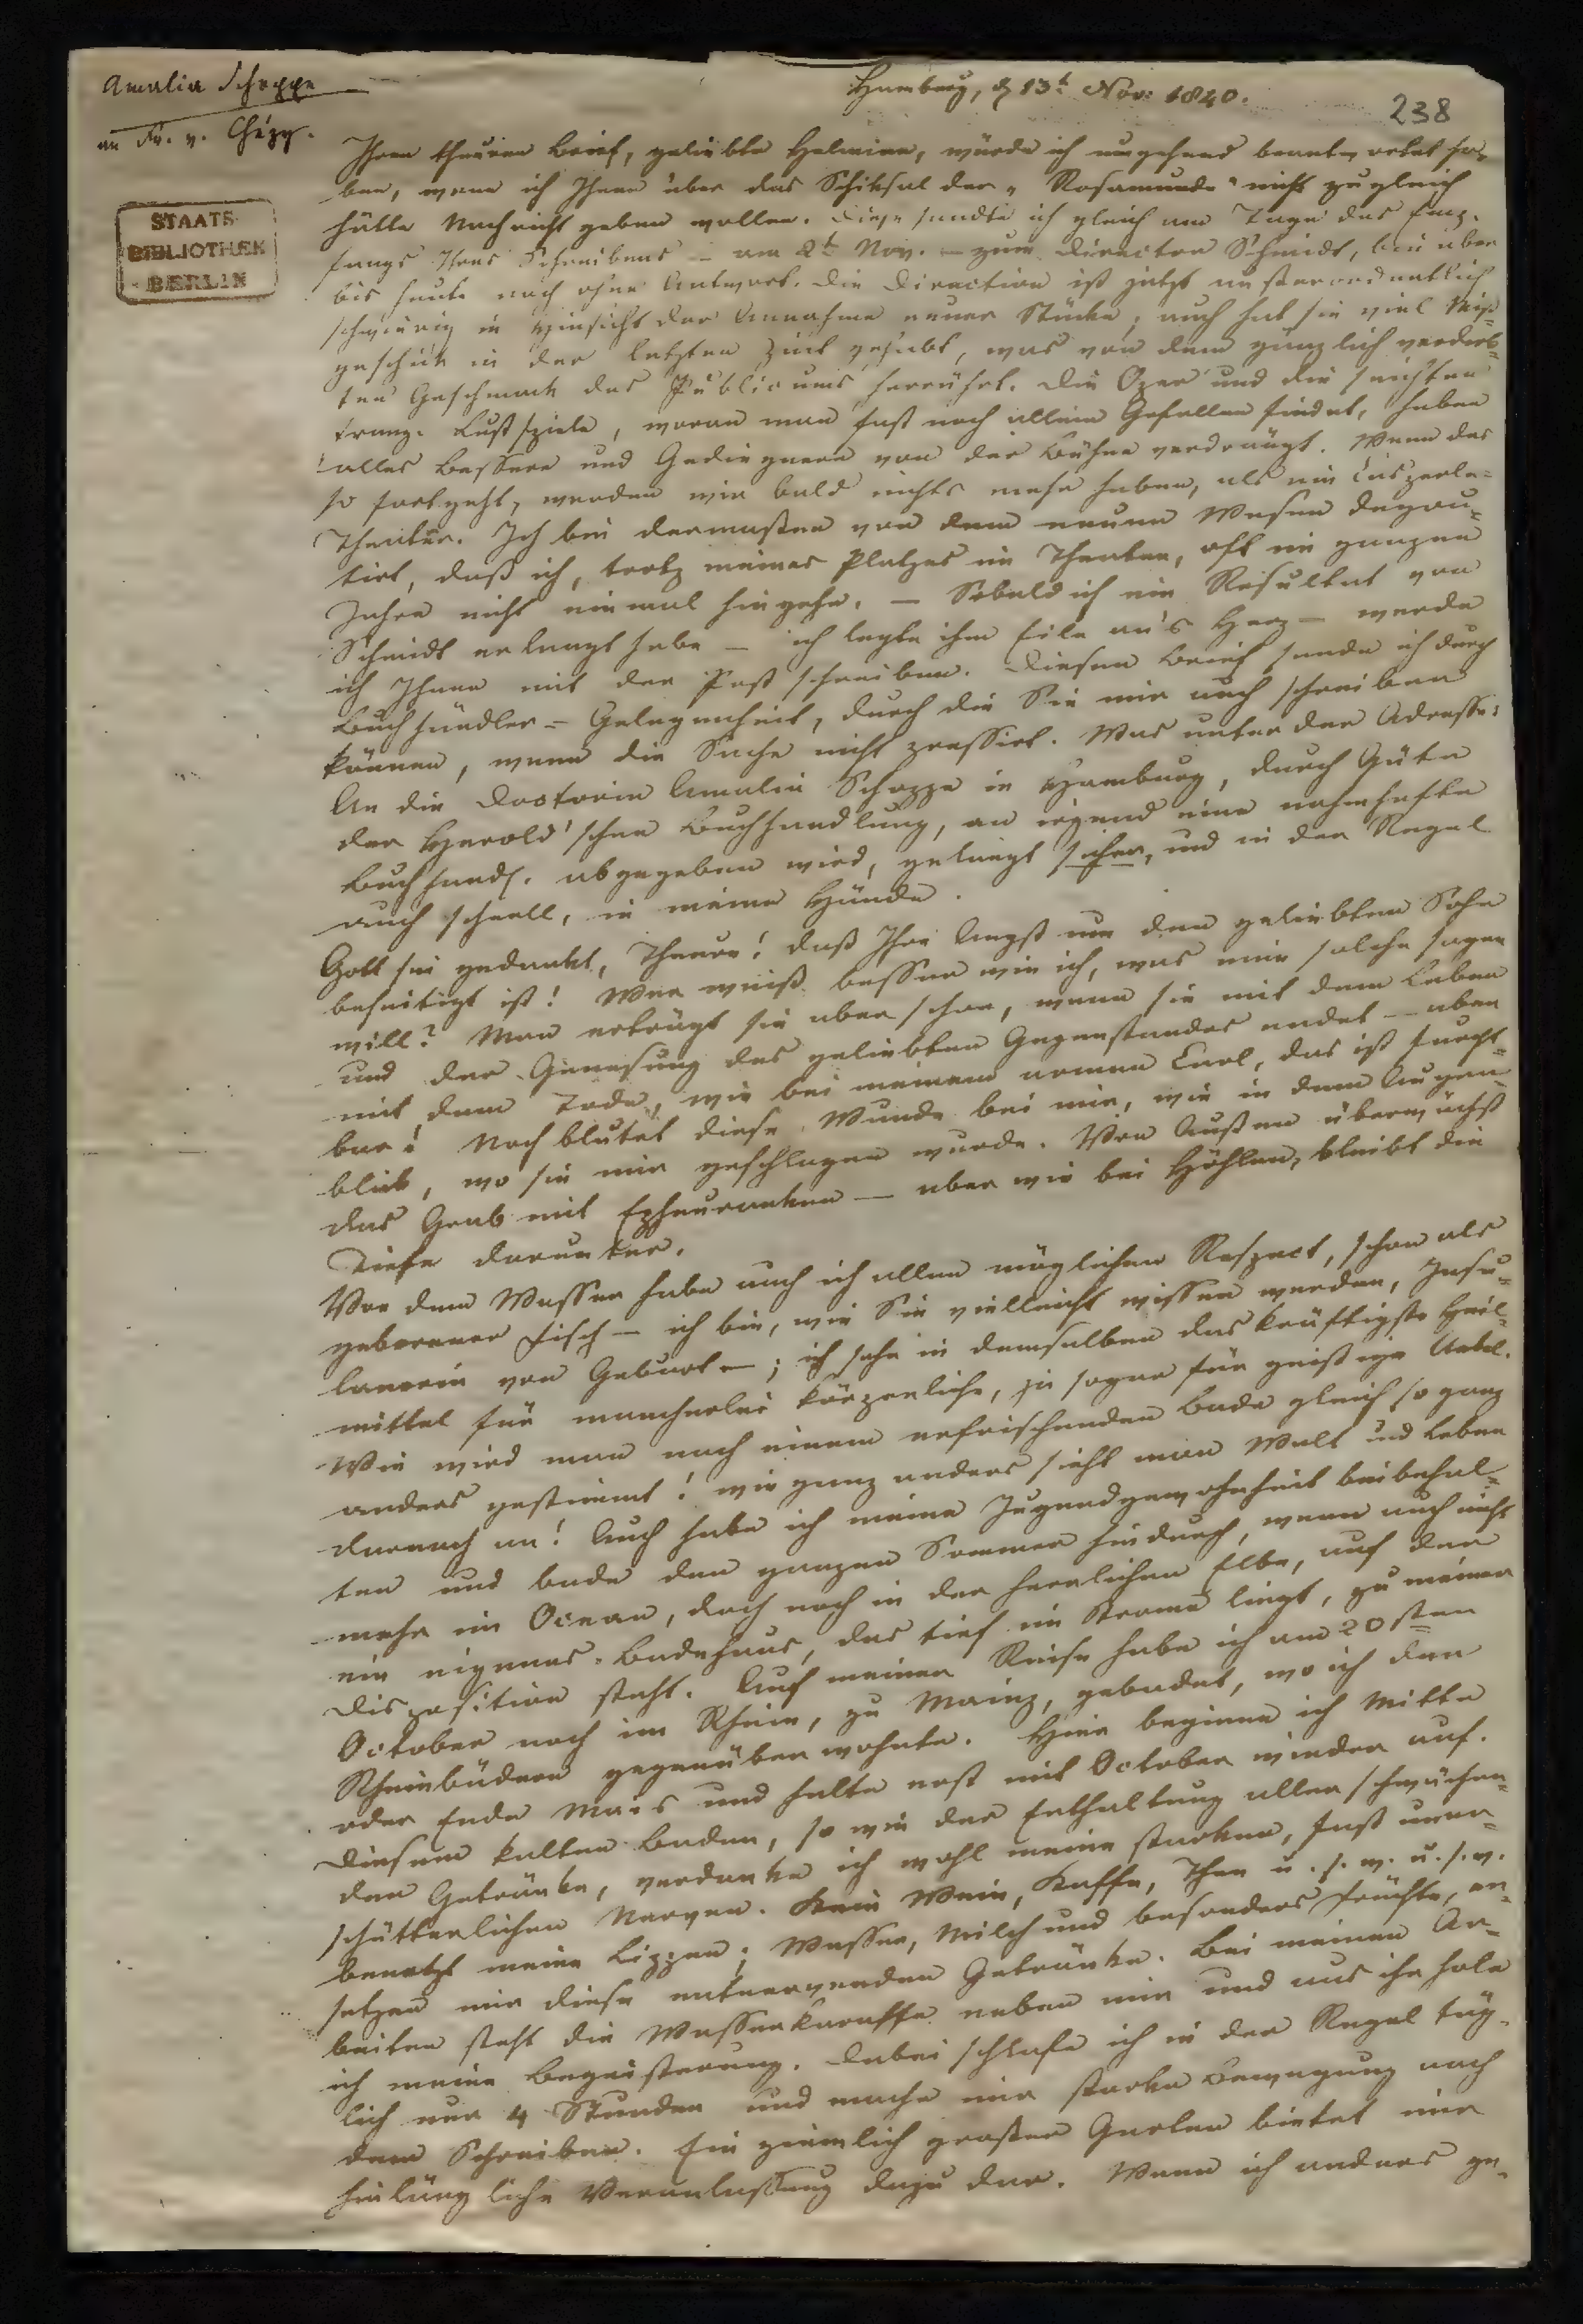 Amalia Schoppe
an Fr. v. Chézy.
Hamburg, d 13t Nov: 1840.
238
STAATS-
BIBLIOTHEK
BERLIN
Ihren theuren Brief, geliebte Helmina, würde ich umgehend beantwortet ha-
ben, wenn ich Ihnen über das Schiksal der „Rosamunde" nicht zugleich
hätte Nachricht geben wollen. Diese sandte ich gleich am Tage des Emp-
fangs Ihres Schreibens – am 2t Nov. – zum Director Schmidt, bin aber
bis heute noch ohne Antwort. Die Direction ist jetzt außerordentlich
schwierig in Hinsicht der Annahme neuer Stücke; auch hat sie viel Miß-
geschick in der letzten Zeit gehabt, was von dem gänzlich verderb-
ten Geschmack des Publicums herrührt. Die Oper und die seichten
franz. Lustspiele, woran man fast noch allein Gefallen findet, haben
alles Bessere und Gediegnere von der Bühne verdrängt. Wenn das
so fortgeht, werden wir bald nichts mehr haben, als ein Casperle-
Theater. Ich bin dermaßen von dem neuen Wesen degou-
tirt, daß ich, trotz meines Platzes im Theater, oft im ganzen
Jahre nicht einmal hingehe. – Sobald ich ein Resultat von
Schmidt erlangt habe – ich legte ihm Eile an's Herz – werde
ich Ihnen mit der Post schreiben. Diesen Brief sende ich durch
Buchhändler-Gelegenheit, durch die Sie mir auch schreiben
können, wenn die Sache nicht pressirt. Was unter der Adresse:
An die Doctorin Amalia Schoppe in Hamburg, durch Güte
der Herold'schen Buchhandlung, an irgend eine nahmhafte
Buchhandl. abgegeben wird, gelangt sicher, und in der Regel
auch schnell, in meine Hände.
Gott sei gedankt, Theure! daß Ihre Angst um den geliebten Sohn
beseitigt ist! Wer weiß besser wie ich, was eine solche sagen
will? Man erträgt sie aber schon, wenn sie mit dem Leben
und der Genesung des geliebten Gegenstandes endet – aber
mit dem Tode, wie bei meinem armen Carl, das ist furcht-
bar! Noch blutet diese Wunde bei mir, wie in dem Augen-
blick, wo sie mir geschlagen wurde. Von Außen überwächst
das Grab mit Epheuranken – aber wie bei Höhlen, bleibt die
Tiefe darunter.
Vor dem Wasser habe auch ich allen möglichen Respect, schon als
geborener Fisch – ich bin, wie Sie vielleicht wissen werden, Insu-
lanerin von Geburt –; ich sehe in demselben das kräftigste Heil-
mittel für mancherlei körperliche, ja sogar für geistige Uebel.
Wie wird man nach einem erfrischenden Bade gleich so ganz
anders gestimmt! wie ganz anders sieht man Welt und Leben
darnach an! Auch habe ich meine Jugendgewohnheit beibehal-
ten und bade den ganzen Sommer hindurch, wenn auch nicht
mehr im Ocean, doch noch in der herrlichen Elbe, auf der
ein eigenes Badehaus, das tief im Strome liegt, zu meiner
Disposition steht. Auf meiner Reise habe ich am 20sten
October noch im Rhein, zu Mainz, gebadet, wo ich den
Rheinbädern gegenüber wohnte. Hier beginne ich Mitte
oder Ende Mai's und halte erst mit October wieder auf.
Diesem kalten Baden, so wie der Enthaltung aller schwächen-
den Getränke, verdanke ich wohl meine starken, fast uner-
schütterlichen Nerven. Kein Wein, Kaffe, Thee u. s. w. u. s. w.
benetzt meine Lippen; Wasser, Milch und besonders Früchte, er-
setzen mir diese entnervenden Getränke. Bei meinen Ar-
beiten steht die Wasserkaraffe neben mir und aus ihr hole
ich meine Begeisterung. Dabei schlafe ich in der Regel täg-
lich nur 4 Stunden und mache mir starke Bewegung nach
dem Schreiben. Ein ziemlich großer Garten bietet mir
hinlängliche Veranlassung dazu dar. Wenn ich anders ge-